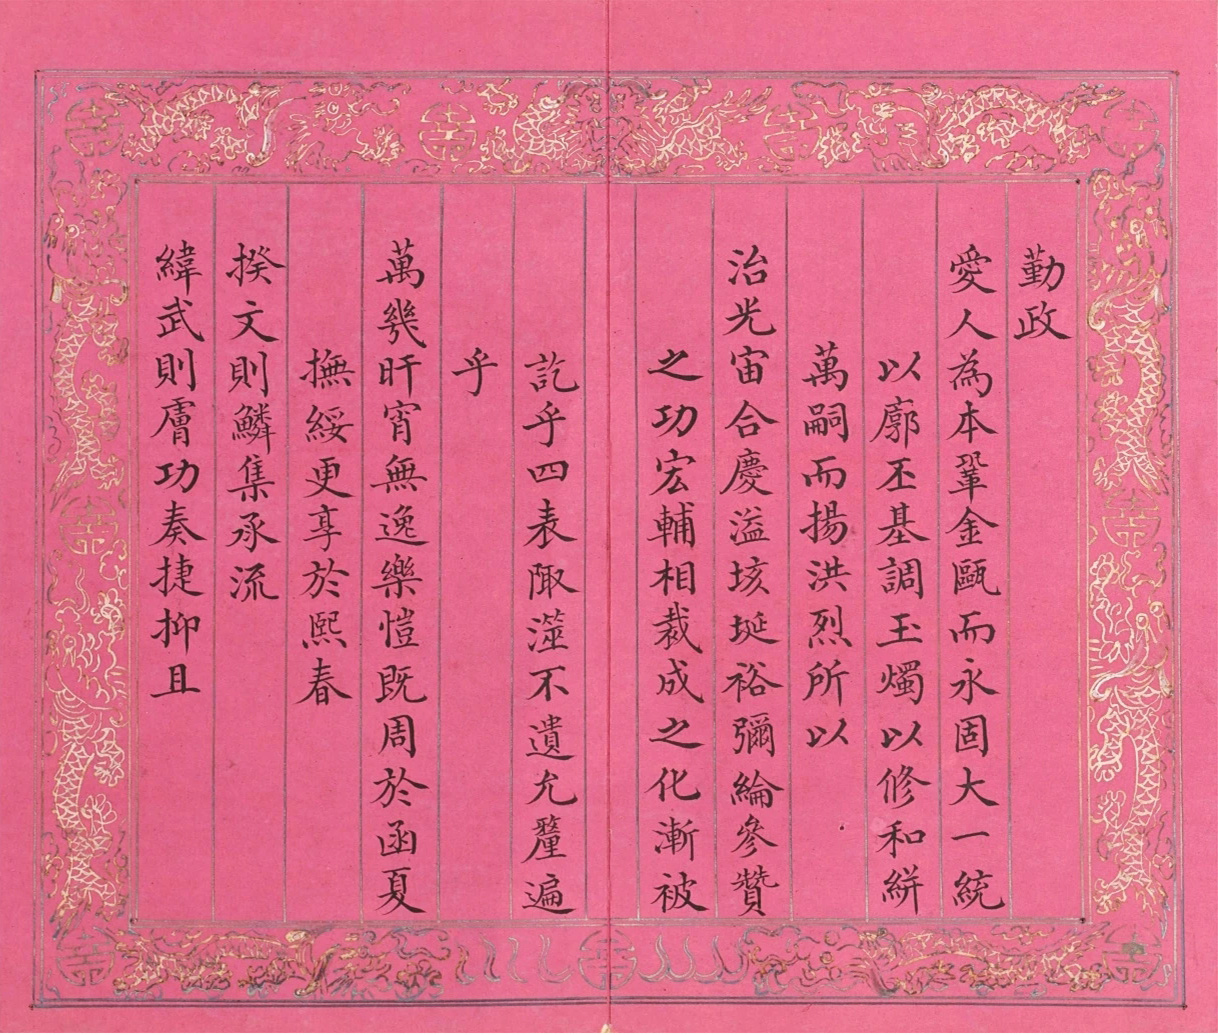 勤政
愛人為本鞏金甌而永固大一統
以廓丕基調玉燭以修和絣
萬嗣而揚洪烈所以
治光宙合慶溢垓埏裕彌綸參贊
之功宏輔相裁成之化漸被
訖乎四表陬澨不遺允釐遍
乎
萬幾旰宵無逸樂愷既周於函夏
撫綏更享於熙春
揆文則鱗集承流
緯武則膚功奏捷抑且